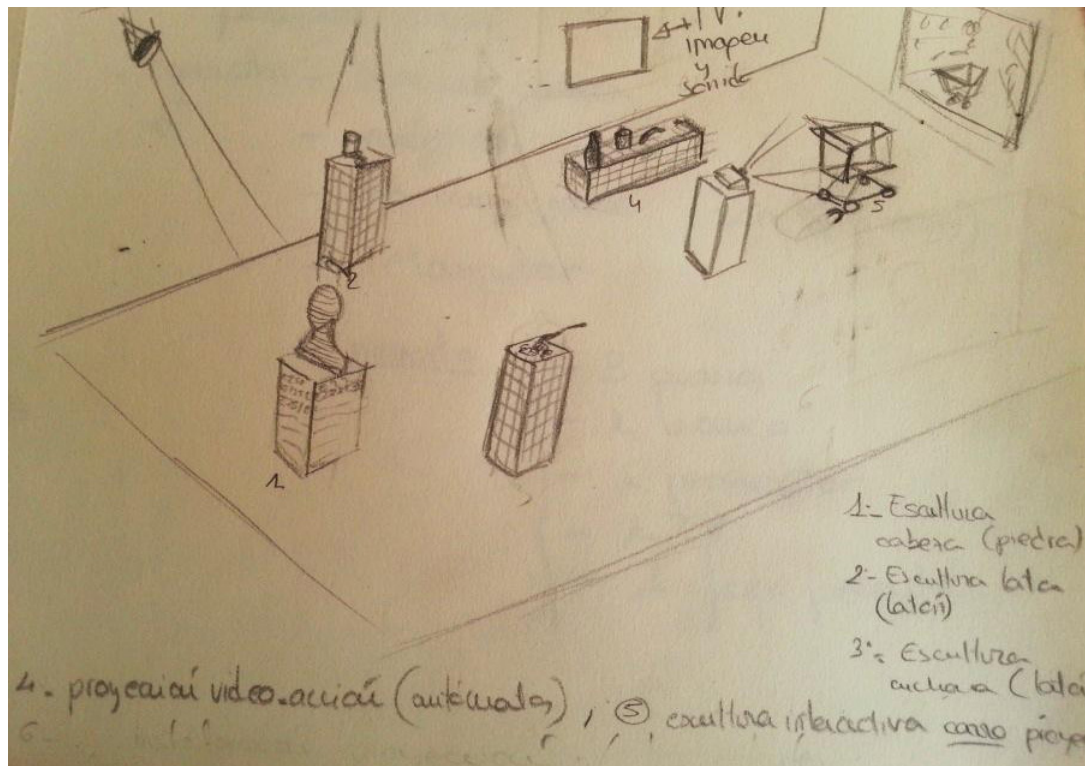 T.V.
imagen
y
sonido
2
4
5
1
1- Escultura
cabeza (piedra)
2- Escultura lata
(latón)
3- Escultura
cuchara (lató
4- proyección video-acción (autómatas), ⑤ escultura interactiva carro proye
6-